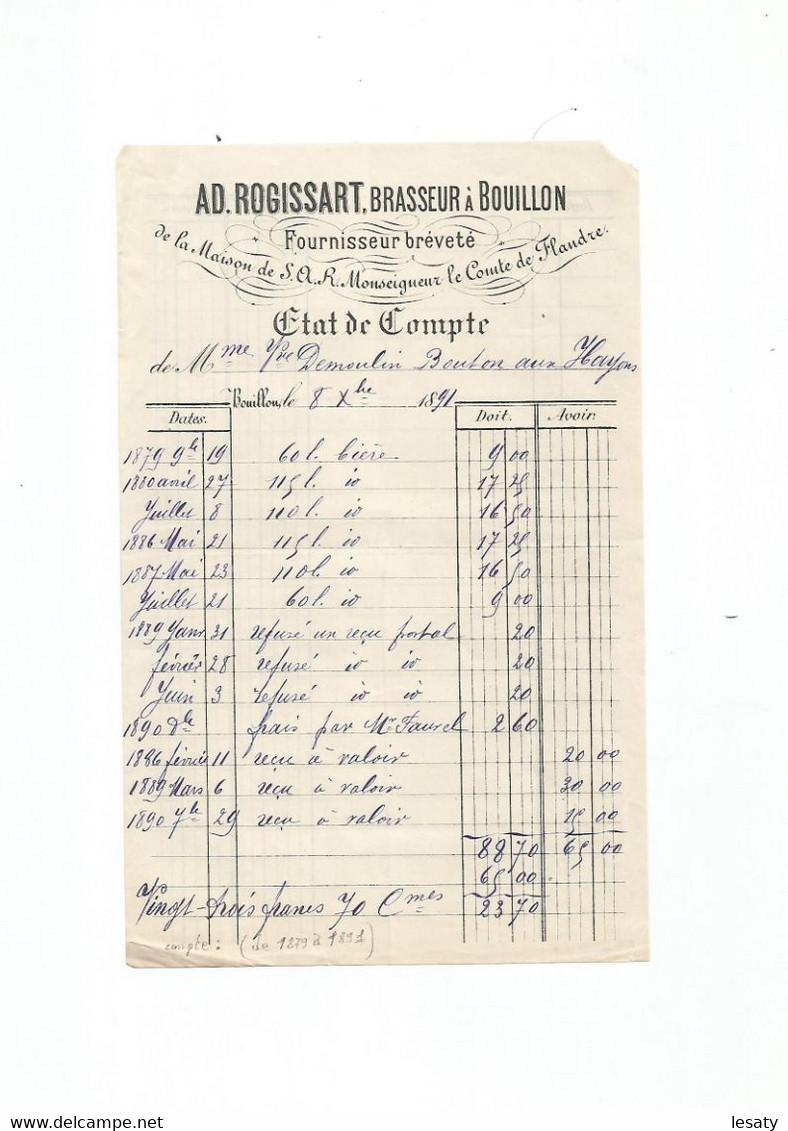 AD. ROGISSART, BRASSEUR À BOUILLON
Fournisseur bréveté
de la Maison de S.A.R. Monseigneur le Comte de Flandre.
Etat de Compte
de Mme Vve Demoulin Bouton aux Hayons
Bouillon, le 8 Xbre 1891
Dates. Doit. Avoir.
1879 9bre 19 60 l. bière 9 00
1880 avril 27 115 l. io 17 25
Juillet 8 110 l. io 16 50
1886 Mai 21 115 l. io 17 25
1887 Mai 23 110 l. io 16 50
Juillet 21 60 l. io 9 00
1889 Janv 31 refusé un reçu postal 20
février 28 refusé io io 20
Juin 3 refusé io io 20
1890 Xbre frais par Mr 2 60
1886 février 11 reçu à valoir 20 00
1889 Mars 6 reçu à valoir 30 00
1890 7bre 29 reçu à valoir 15 00
88 70 65 00
65 00
Vingt-trois francs 70 Cmes 23 70
compte : (de 1879 à 1891)
lesaty